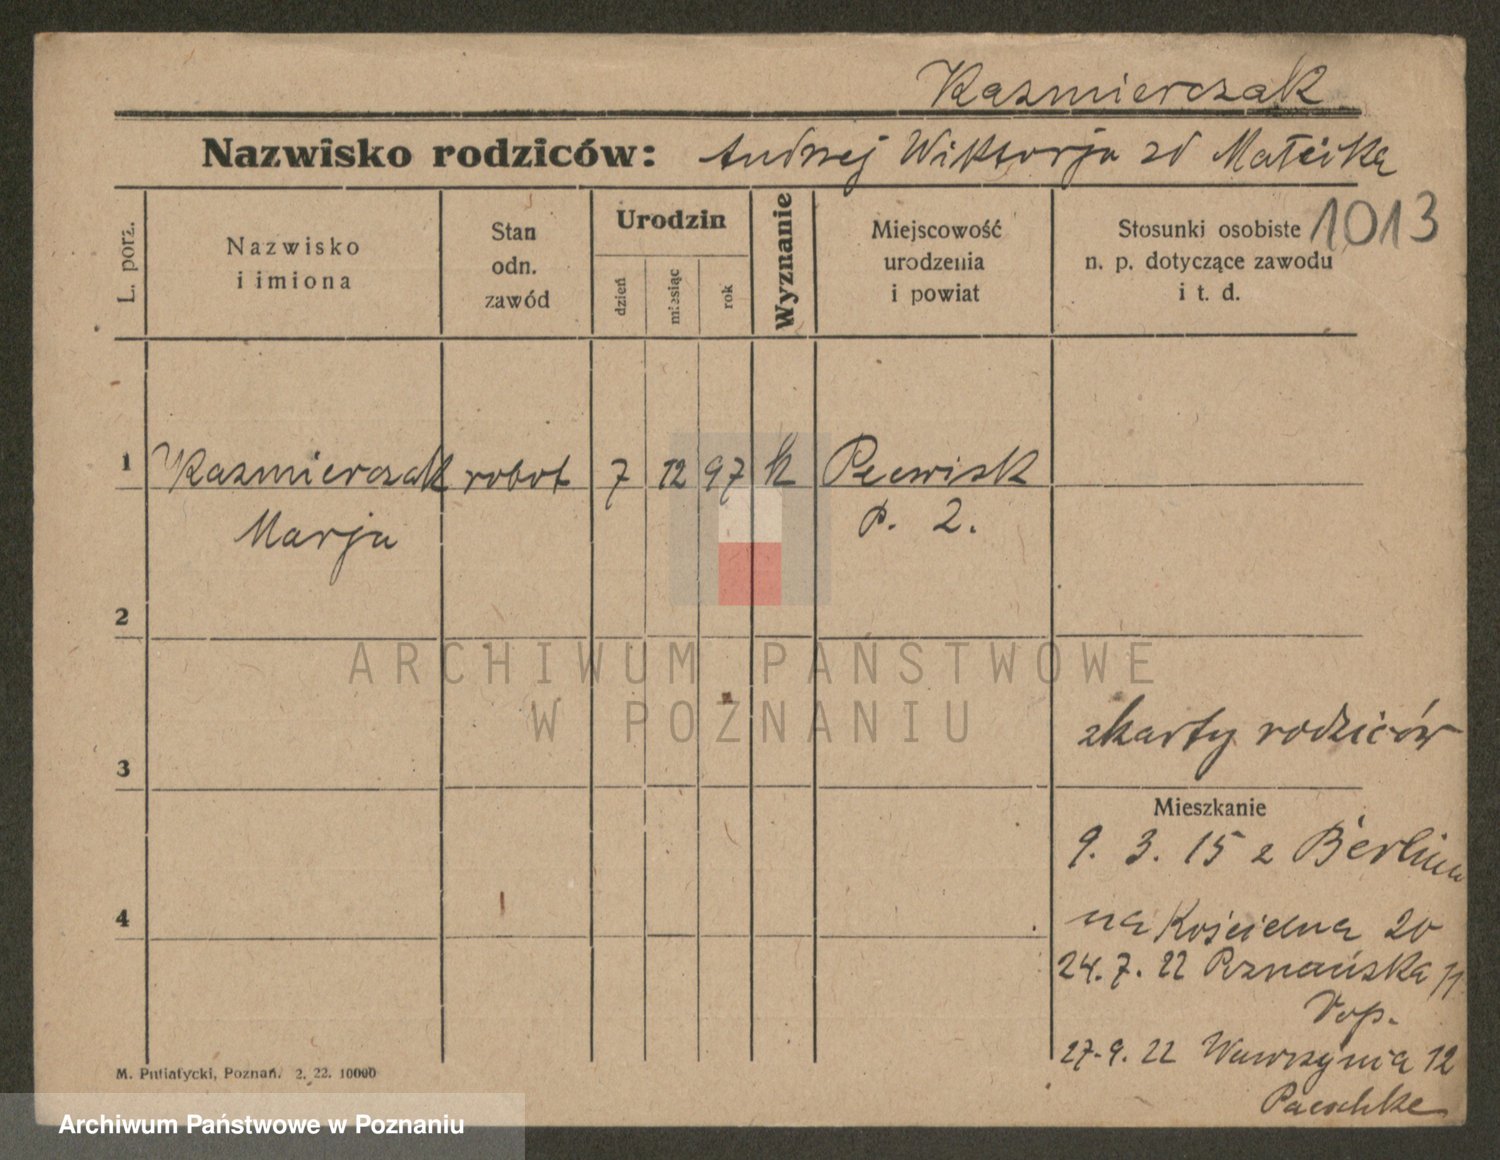 Kazmierczak
Nazwisko rodziców: Andrzej Wiktorja zd Małecka
1013
L. porz.
Nazwisko
i imiona
Stan
odn.
zawód
Urodzin
dzień
miesiąc
rok
Wyznanie
Miejscowość
urodzenia
i powiat
Stosunki osobiste
n. p. dotyczące zawodu
i t. d.
1 Kazmierczak robot 7 12 97 k Plewisk
Marja p. 2.
2
ARCHIWUM PAŃSTWOWE
W POZNANIU
z karty rodziców
3
Mieszkanie
9. 3. 15 z Berlina
4
na Kościelna 20
24. 7. 22 Poznańska 11
Pop.
27. 9. 22 Wawrzynia 12
Paeschke
M. Putiatycki, Poznań. 2. 22. 10000
Archiwum Państwowe w Poznaniu